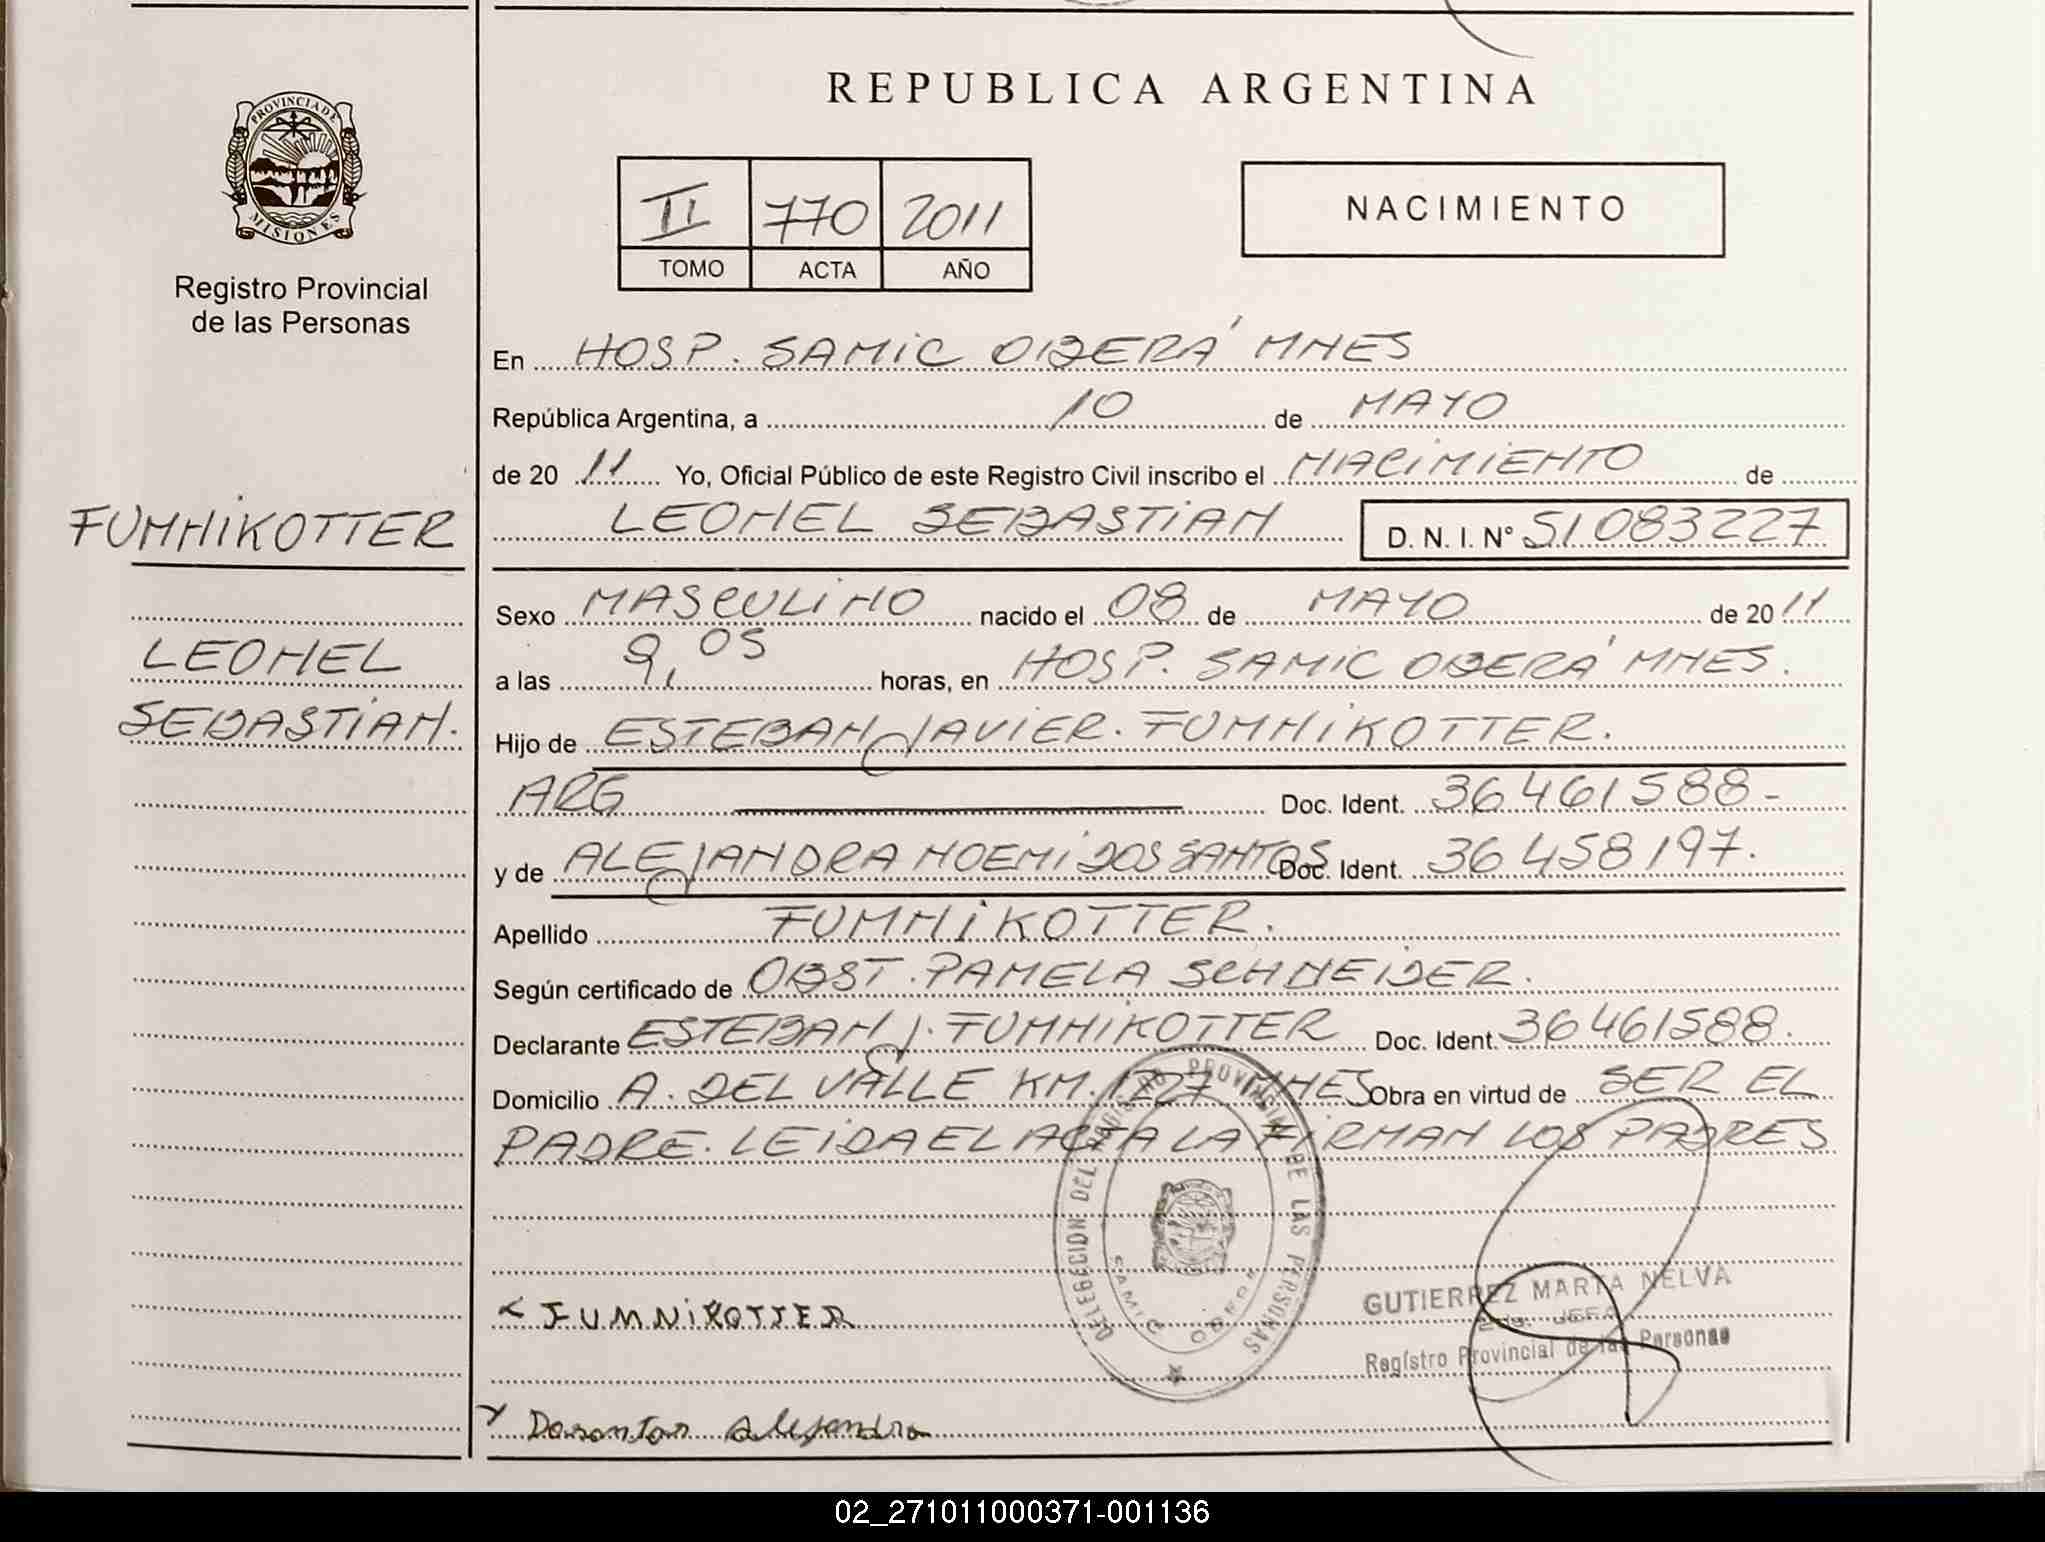 PROVINCIA DE
MISIONES
Registro Provincial
de las Personas
FUMNIKOTTER
LEONEL
SEBASTIAN.
REPUBLICA ARGENTINA
II 770 2011
TOMO ACTA AÑO
NACIMIENTO
En HOSP. SAMIC OBERÁ MNES
República Argentina, a 10 de MAYO
de 20 11 Yo, Oficial Público de este Registro Civil inscribo el NACIMIENTO de
LEONEL SEBASTIAN D. N. I. N° 51083227
Sexo MASCULINO nacido el 08 de MAYO de 20 11
a las 9,05 horas, en HOSP. SAMIC OBERÁ MNES.
Hijo de ESTEBAN JAVIER. FUMNIKOTTER.
ARG Doc. Ident. 36461588-
y de ALEJANDRA NOEMI DOS SANTOS Doc. Ident. 36458197.
Apellido FUMNIKOTTER.
Según certificado de OBST. PAMELA SCHNEIDER.
Declarante ESTEBAN J. FUMNIKOTTER Doc. Ident. 36461588.
Domicilio A. DEL VALLE KM. 1227 MNES Obra en virtud de SER EL
PADRE. LEIDA EL ACTA LA FIRMAN LOS PADRES
DELEGACION DEL PROVINCIAL DE LAS PERSONAS
FUMNIKOTTER
GUTIERREZ MARTA NELVA
JEFA
Registro Provincial de las Personas
Dosantos Alejandra
02_271011000371-001136